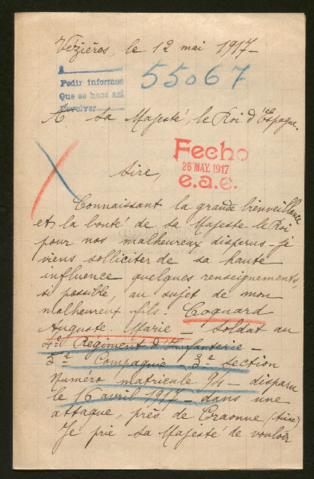 Vézières, le 12 mai 1917-
55067
Pedir informes
Que se hace así
Devolver
A Sa Majesté, le Roi d'Espagne.
Fecho
26 MAY. 1917
e.a.e.
Sire,
Connaissant la grande bienveillance
et la bonté de Sa Majesté le Roi
pour nos malheureux disparus - je
viens solliciter de sa haute
influence quelques renseignements,
si possible, au sujet de mon
malheureux fils. Coquard
Auguste Marie - soldat au
Régiment d'Infanterie -
5e Compagnie - 3e Section
Numéro matricule - disparu
le 16 avril 1917 - dans une
attaque, près de Craonne (Aisne)
Je prie Sa Majesté de vouloir